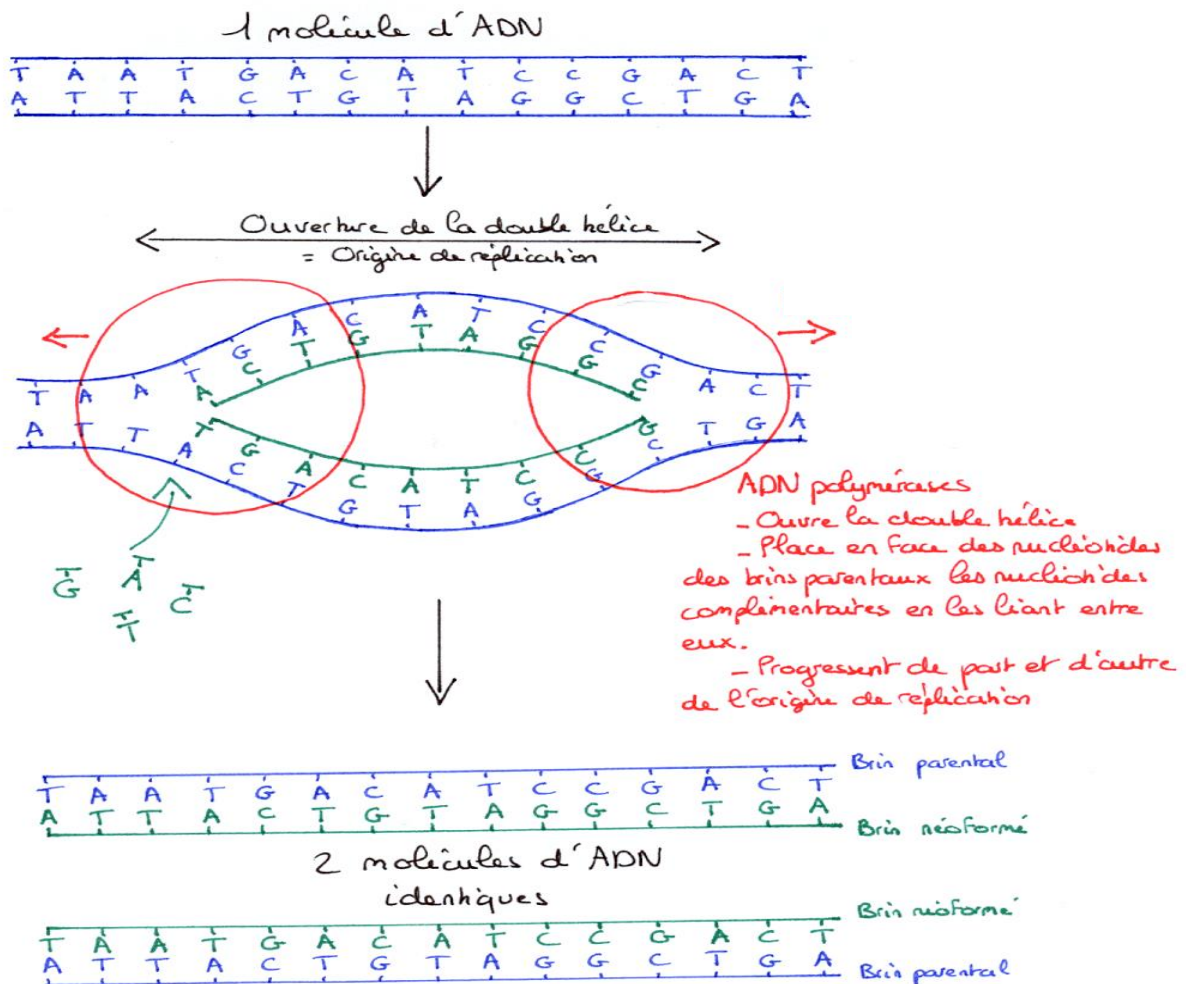 1 molécule d'ADN
T A A T G A C A T C C G A C T
A T T A C T G T A G G C T G A
Ouverture de la double hélice
= Origine de réplication
T A A T G A C A T C C G A C T
A C T G T A G G C
T G A C A T C C G
A T T A C T G T A G G C T G A
G A C
T
ADN polymérases
- Ouvre la double hélice
- Place en face des nucléotides
des brins parentaux les nucléotides
complémentaires en les liant entre
eux.
- Progressent de part et d'autre
de l'origine de réplication
Brin parental
T A A T G A C A T C C G A C T
A T T A C T G T A G G C T G A
Brin néoformé
2 molécules d'ADN
identiques
Brin néoformé
T A A T G A C A T C C G A C T
A T T A C T G T A G G C T G A
Brin parental